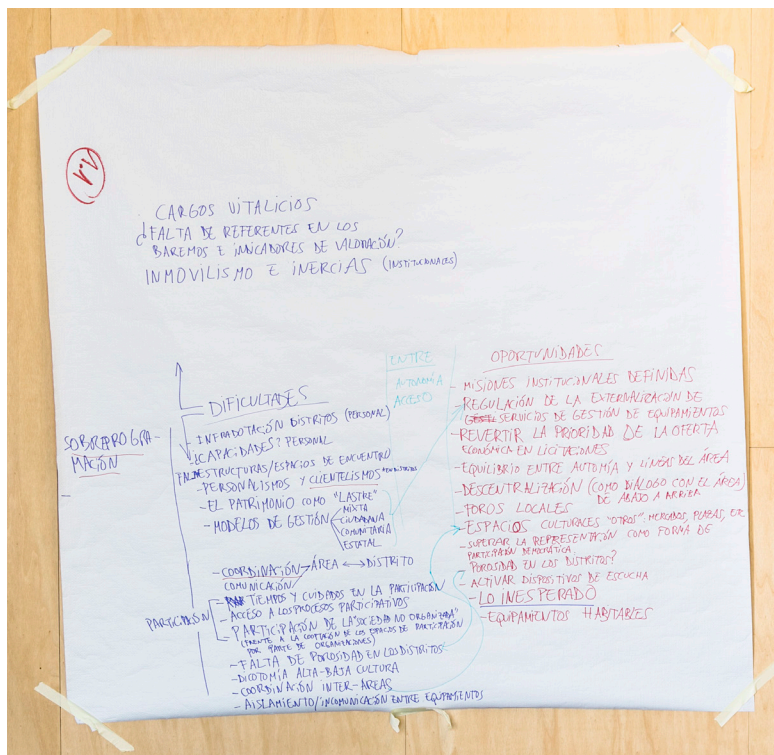 V.V
CARGOS VITALICIOS
¿FALTA DE REFERENTES EN LOS
BAREMOS E INDICADORES DE VALORACIÓN?
INMOVILISMO E INERCIAS (INSTITUCIONALES)
SOBREPROGRA-
MACIÓN
DIFICULTADES
- INFRADOTACIÓN DISTRITOS (PERSONAL)
- ¿CAPACIDADES? PERSONAL
ESTRUCTURAS/ESPACIOS DE ENCUENTRO
- PERSONALISMOS Y CLIENTELISMOS
- EL PATRIMONIO COMO "LASTRE"
- MODELOS DE GESTIÓN
MIXTA
CIUDADANA
COMUNITARIA
ESTATAL
- COORDINACIÓN ÁREA ↔ DISTRITO
COMUNICACIÓN
PARTICIPACIÓN
- TIEMPOS Y CUIDADOS EN LA PARTICIPACIÓN
- ACCESO A LOS PROCESOS PARTICIPATIVOS
- PARTICIPACIÓN DE LA "SOCIEDAD NO ORGANIZADA"
(FRENTE A LA COOPTACIÓN DE LOS ESPACIOS DE PARTICIPACIÓN
POR PARTE DE ORGANIZACIONES)
- FALTA DE POROSIDAD EN LOS DISTRITOS
- DICOTOMÍA ALTA-BAJA CULTURA
- COORDINACIÓN INTER-ÁREAS
- AISLAMIENTO/INCOMUNICACIÓN ENTRE EQUIPAMIENTOS
ENTRE
AUTONOMÍA
ACCESO
OPORTUNIDADES
- MISIONES INSTITUCIONALES DEFINIDAS
- REGULACIÓN DE LA EXTERNALIZACIÓN DE
SERVICIOS DE GESTIÓN DE EQUIPAMIENTOS
- REVERTIR LA PRIORIDAD DE LA OFERTA
ECONÓMICA EN LICITACIONES
- EQUILIBRIO ENTRE AUTOMÍA Y LÍNEAS DEL ÁREA
- DESCENTRALIZACIÓN (COMO DIÁLOGO CON EL ÁREA)
DE ABAJO A ARRIBA
- FOROS LOCALES
- ESPACIOS CULTURALES "OTROS": MERCADOS, PLAZAS, ETC
- SUPERAR LA REPRESENTACIÓN COMO FORMA DE
PARTICIPACIÓN DEMOCRÁTICA
POROSIDAD EN LOS DISTRITOS?
- ACTIVAR DISPOSITIVOS DE ESCUCHA
- LO INESPERADO
- EQUIPAMIENTOS HABITABLES